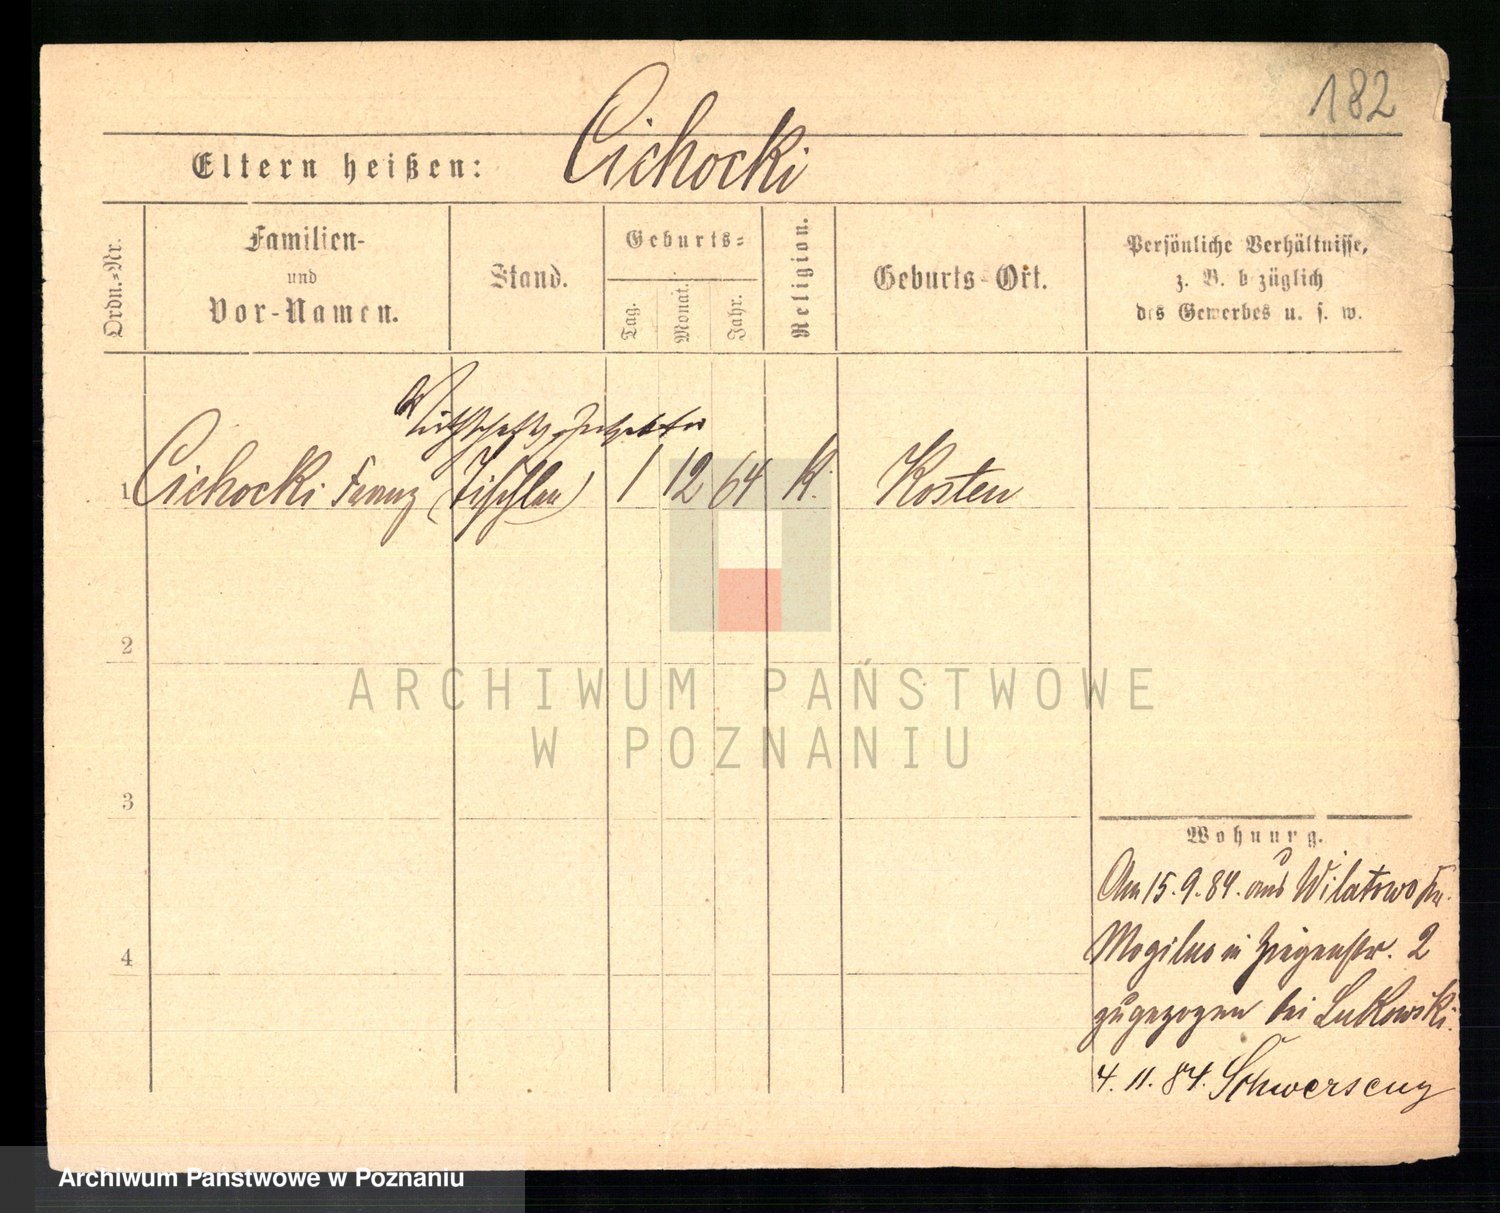 182
Cichocki
Eltern heißen:
Ordn.-Nr.
Familien-
und
Vor-Namen.
Stand.
Geburts-
Tag.
Monat.
Jahr.
Religion.
Geburts-Ort.
Persönliche Verhältnisse,
z. B. bezüglich
des Gewerbes u. s. w.
1 Cichocki Franz (Tischler) 1 12 64 K. Kosten
2
3
4
Wohnung.
Am 15.9.84. aus Wilatowo Kr.
Mogilno in Ziegenstr. 2
zugezogen bei Lukowski.
4.11.84. Schwersenz
ARCHIWUM PAŃSTWOWE
W POZNANIU
Archiwum Państwowe w Poznaniu